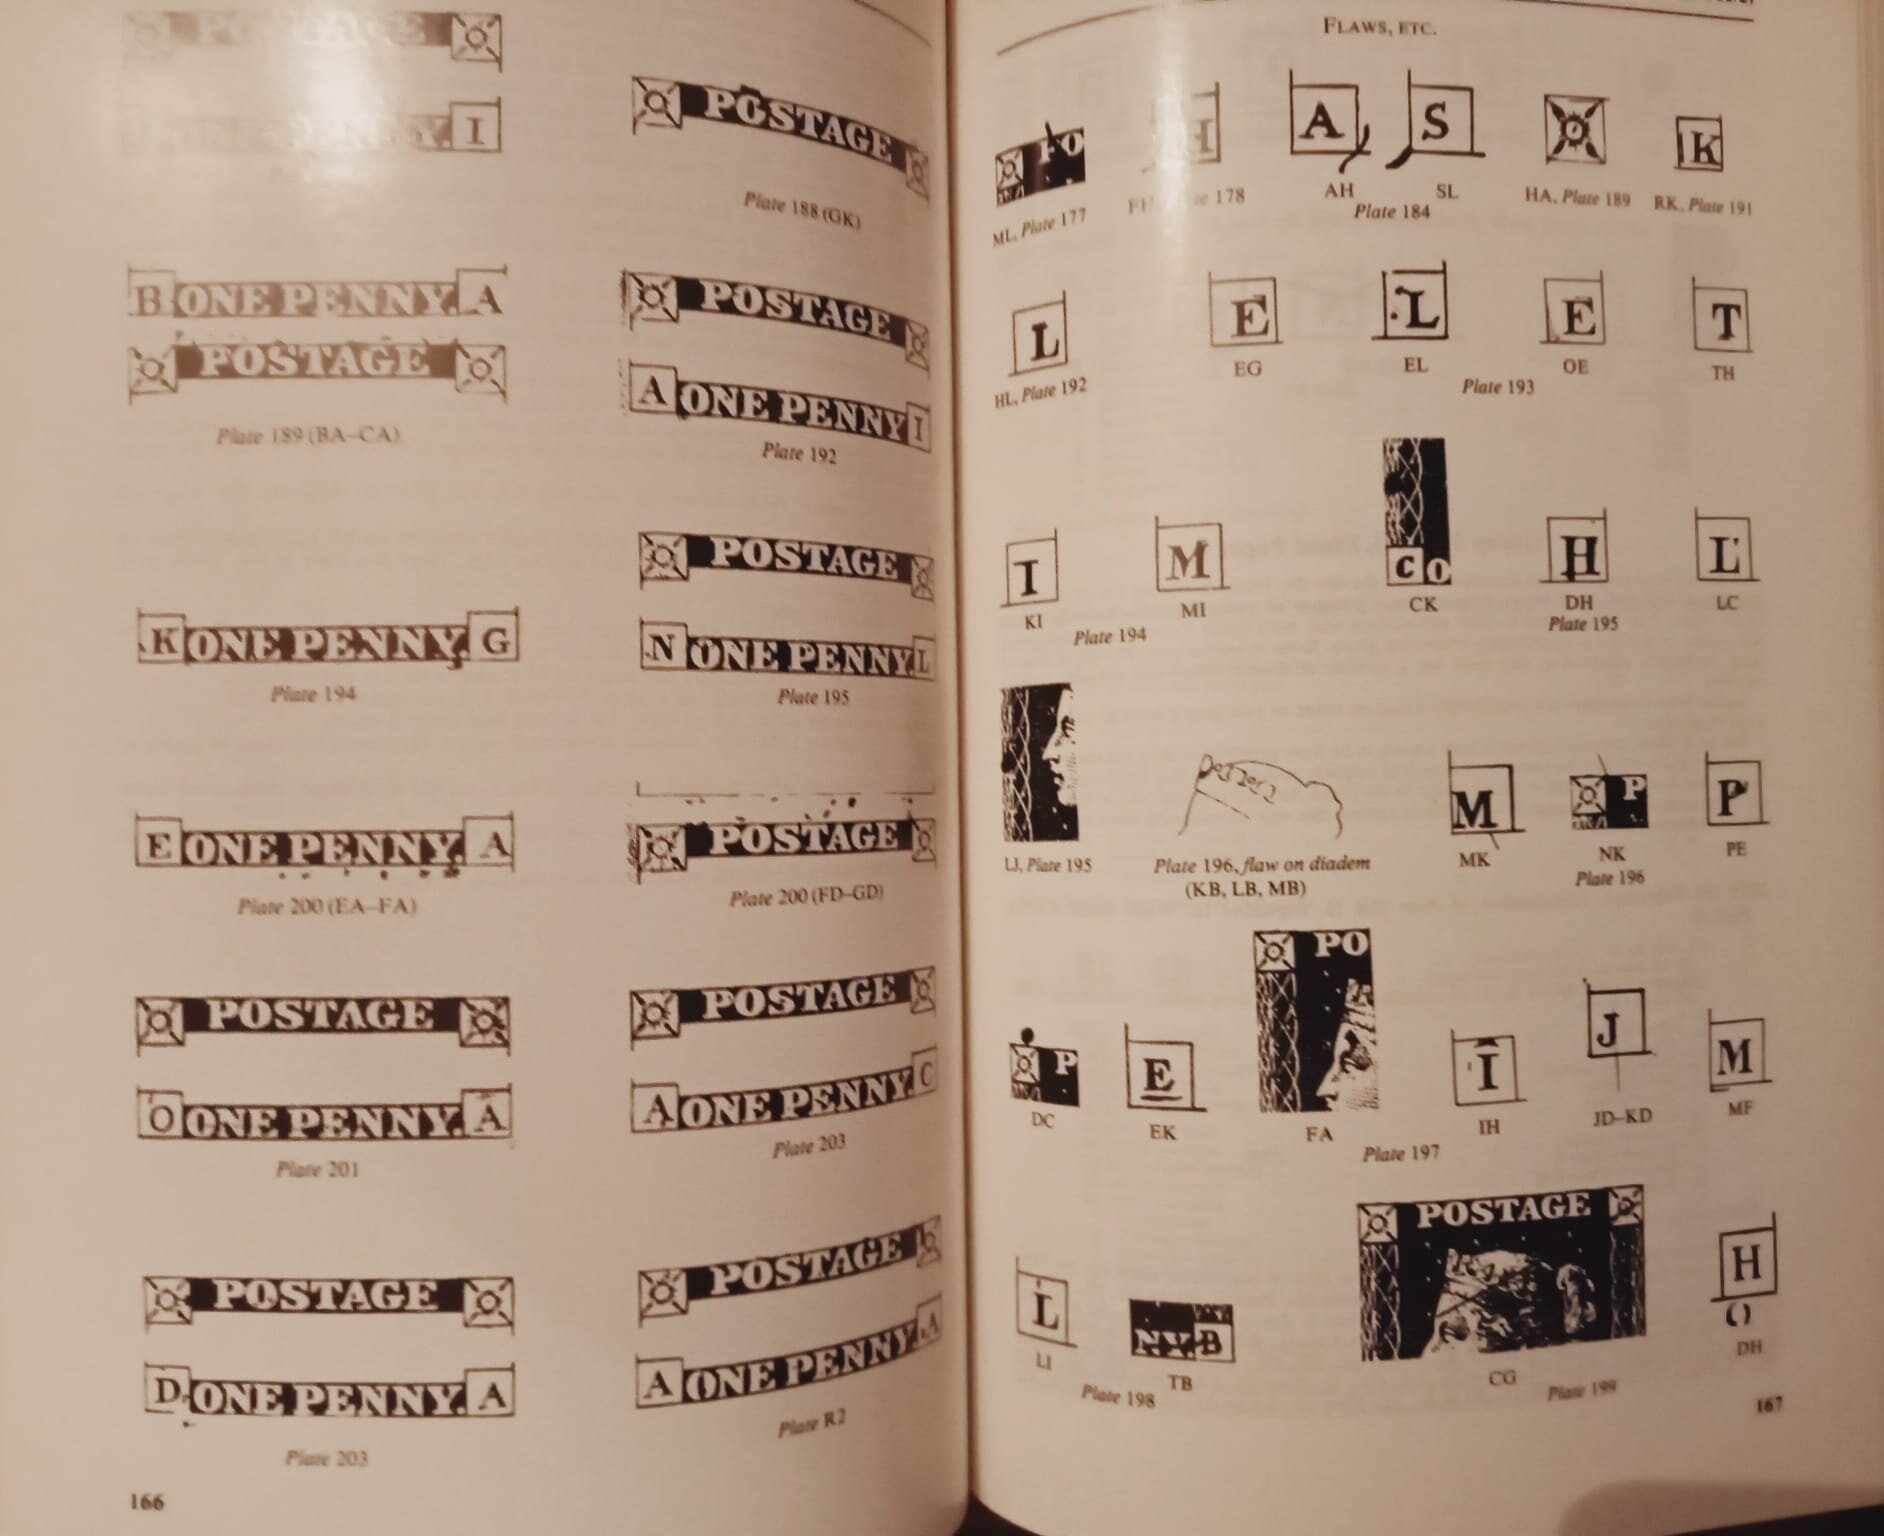 POSTAGE
ONE PENNY. I
B ONE PENNY. A
POSTAGE
Plate 189 (BA–CA)
K ONE PENNY. G
Plate 194
E ONE PENNY. A
Plate 200 (EA–FA)
POSTAGE
O ONE PENNY. A
Plate 201
POSTAGE
D ONE PENNY. A
Plate 203
166
POSTAGE
Plate 188 (GK)
POSTAGE
A ONE PENNY I
Plate 192
POSTAGE
N ONE PENNY. L
Plate 195
POSTAGE
Plate 200 (FD–GD)
POSTAGE
A ONE PENNY. C
Plate 203
POSTAGE
A ONE PENNY. A
Plate R2
FLAWS, ETC.
PO H A S K
ML, Plate 177
178
AH SL
Plate 184
HA, Plate 189
RK, Plate 191
L E L E T
HL, Plate 192
EG EL OE TH
Plate 193
I M C O H L
KI MI
Plate 194
CK DH LC
Plate 195
M P P
LJ, Plate 195
Plate 196, flaw on diadem
(KB, LB, MB)
MK NK PE
Plate 196
P E PO I J M
DC EK FA IH JD–KD MF
Plate 197
L NY. B POSTAGE H
LI TB
Plate 198
CG DH
Plate 199
167